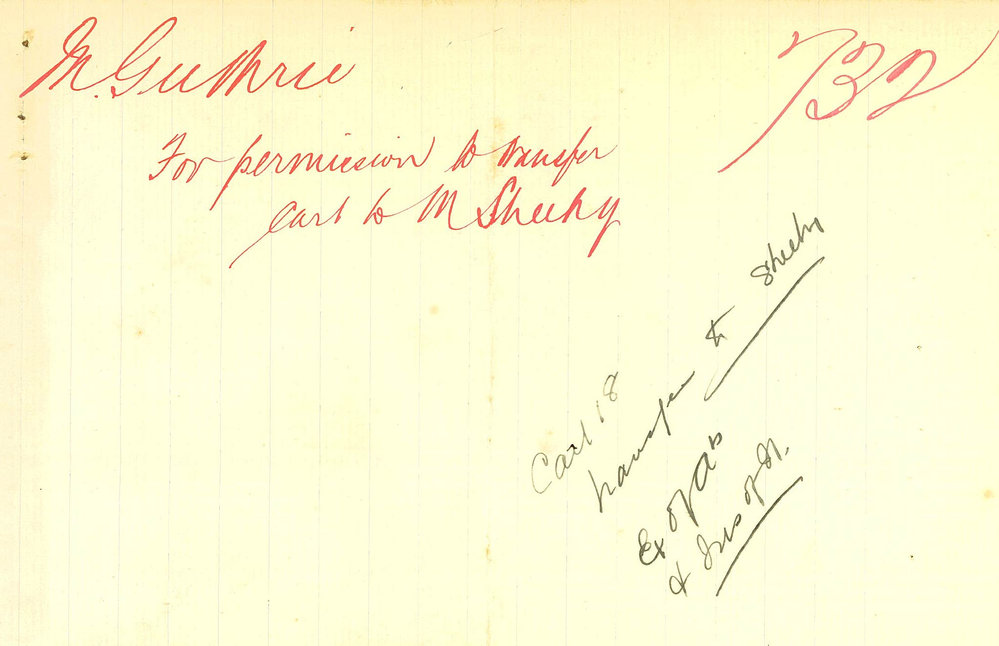 M. Guthrie
732
For permission to transfer
Cart to M Sheehy
Cart 18
transfer to Sheehy
Ex of A/s
& Ins of N.